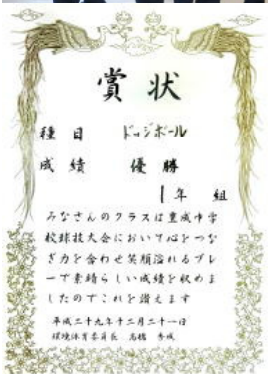 賞状
種目 ドッジボール
成績 優勝
1年 組
みなさんのクラスは豊成中学
校球技大会において心をつな
ぎ力を合わせ笑顔溢れるプレ
ーで素晴らしい成績を収めま
したのでこれを讃えます
平成二十九年十二月二十一日
環境体育委員長 高橋